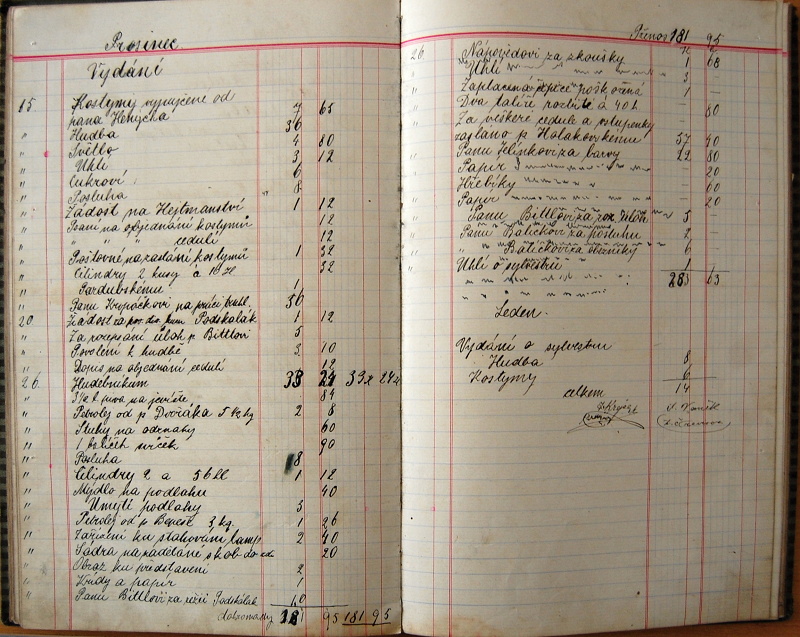 Prosinec.
Vydání
15 Kostymy vypujčene od
pana Henycha 7 65
" Hudba 36
" Světlo 4 80
" Uhlí 3 12
" Cukroví 6
" Posluha 8
" Žádost na Hejtmanství 1 12
" Psaní na objednání kostymů 12
" " " " cedulí 12
" Poštovné na zaslání kostymů 1 32
" Cilindry 2 kusy 32
Pardubskému 1
" Panu na práci 36
20 Žádost Podskalák 1 12
" Za rozepsání úloh p Bittlovi 5
" Povolení k hudbě 3 10
" Dopis na objednání cedulí 12
26. Hudebníkum 33 24 33 24
" piva na jeviště 84
" Petrolej od p Dvořáka 5 kg 2 8
" Stuhy na odznaky 60
" 1 90
" Posluha 8
" Cilindry 2 a 56 1 12
" Mýdlo na podlahu 40
" Umytí podlahy 3
" Petrolej od p Beneše 3 kg. 1 26
" Zařízení ku stahování lamp 2 40
" Sádra na zadělané skob 20
" Obraz ku představení 2
" Křídy a papír 1
" Panu Bittlovi za režii Podskalák 10
dohromady 181 95 181 95
Přenos 181 95
26. Nápovědovi za zkoušky
" Uhlí 1 68
3
Zaplacená 1 –
Dva talíře rozbité á 40 h – 80
Za veškere cedule a vstupenky
zasláno p Holakovskému 57 40
Panu Jelínkovi za barvy 22 80
Papír – 20
Hřebíky – 60
Papír – 20
Panu Bittlovi za 5 –
Panu Baličkovi za posluhu 2 –
" " Baličkovi za obzníky 6
Uhlí o sylvestru 1
283 63
Leden.
Vydání o sylvestru
Hudba 8
Kostymy 6
celkem 14